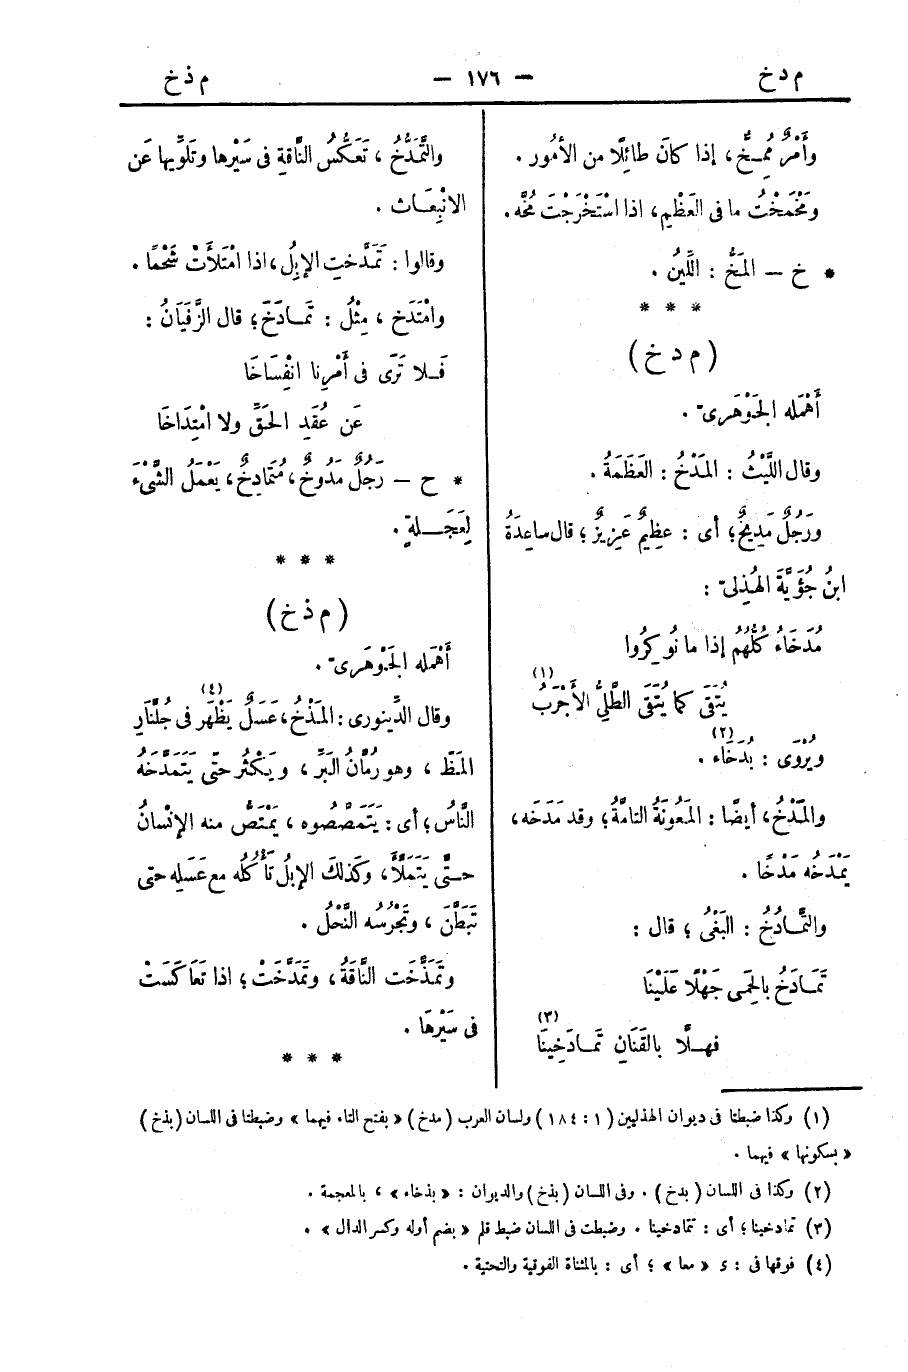 م د خ
— ١٧٦ —
م ذ خ
وأَمْرٌ مُمِخٌّ، إذا كانَ طائِلًا من الأمُور .
ومَخْمَخْتُ ما فى العَظْمِ، اذا اسْتَخْرَجْتَ مُخَّه.
* خ — المَخُّ : اللِّينُ .
* * *
( م د خ )
أَهْمَله الجَوْهَرىّ .
وقال اللَّيْثُ : المَدْخُ : العَظَمَةُ .
ورَجُلٌ مَدِيخٌ؛ أى : عظِيمٌ عَزِيزٌ؛ قال ساعِدَةُ
ابنُ جُؤَيَّةَ الهُذِلىّ :
مُدَخَاءُ كُلُّهُم إذا ما نُوكِرُوا
يُتَّقَى كما يُتَّقَى الطَّلِىُّ الأَجْرَبُ (١)
ويُرْوَى : بُدَخَاء (٢) .
والمَدْخُ، أيضًا : المَعُونَةُ التامَّةُ؛ وقد مَدَخَه،
يَمْدَخُه مَدْخًا .
والتَّمَادُخُ : البَغْىُ ؛ قال :
تَمَادَخُ بالحِمَى جَهْلًا عَلَيْنَا
فهــلَّا بالقَنَانِ تَمَادَخِينَا (٣)
والتَّمَدُّخُ ، تَعَكُّسُ النَّاقةِ فى سَيْرها وتَلَوِّيها عَن
الانْبِعَاث .
وقالوا : تَمَدَّختِ الإبِلُ، اذا امْتَلأَتْ شَحْمًا .
وامْتَدَخ ، مِثْلُ : تَمَادَخَ؛ قال الزَّفَيَانُ :
فَلا تَرَى فى أَمْرِنا انْفِسَاخَا
عَن عُقَدِ الحَقِّ ولا امْتِدَاخَا
* ح — رَجُلٌ مَدُوخٌ، مُتَمَادِخٌ، يَعْمَلُ الشَّىْءَ
لِعَجَــلَةٍ .
* * *
( م ذ خ )
أَهْمَله الجَوْهَرىّ .
وقال الدِّينورى : المَذْخُ، عَسَلٌ يَظْهَر (٤) فى جُلَّنارِ
المَظّ ، وهو رُمَّانُ البَرِّ ، ويَكْثُر حتّى يَتَمَذَّخَهُ
النَّاسُ؛ أى : يَتَمَصَّصُوه ، يَمْتَصُّ منه الإنْسانُ
حــتَّى يَتَمَلَّأَ، وكَذلكَ الإبلُ تَأْكُلُه مع عَسَلِه حتى
تَبَطَّنَ ، وتَجْرُسُه النَّحْلُ .
وتَمَذَّخَت النَّاقةُ ، وتَمَدَّخَتْ؛ اذا تَعَاكَسَتْ
فى سَيْرِهَا .
* * *
(١) وكذا ضبطتا فى ديوان الهذليين (١ : ١٨٤) ولسان العرب (مدخ) « بفتح التاء فيهما » وضبطتا فى اللسان (بذخ)
« بسكونها » فيهما .
(٢) وكذا فى اللسان ( بدخ ) . وفى اللسان ( بذخ ) والديوان : « بذخاء » ، بالمعجمة .
(٣) تمادخينا ؛ أى : تتمادخينا . وضبطت فى اللسان ضبط قلم « بضم أوله وكسر الدال » .
(٤) فوقها فى : s « معا » ؛ أى : بالمثناة الفوقية والتحتية .